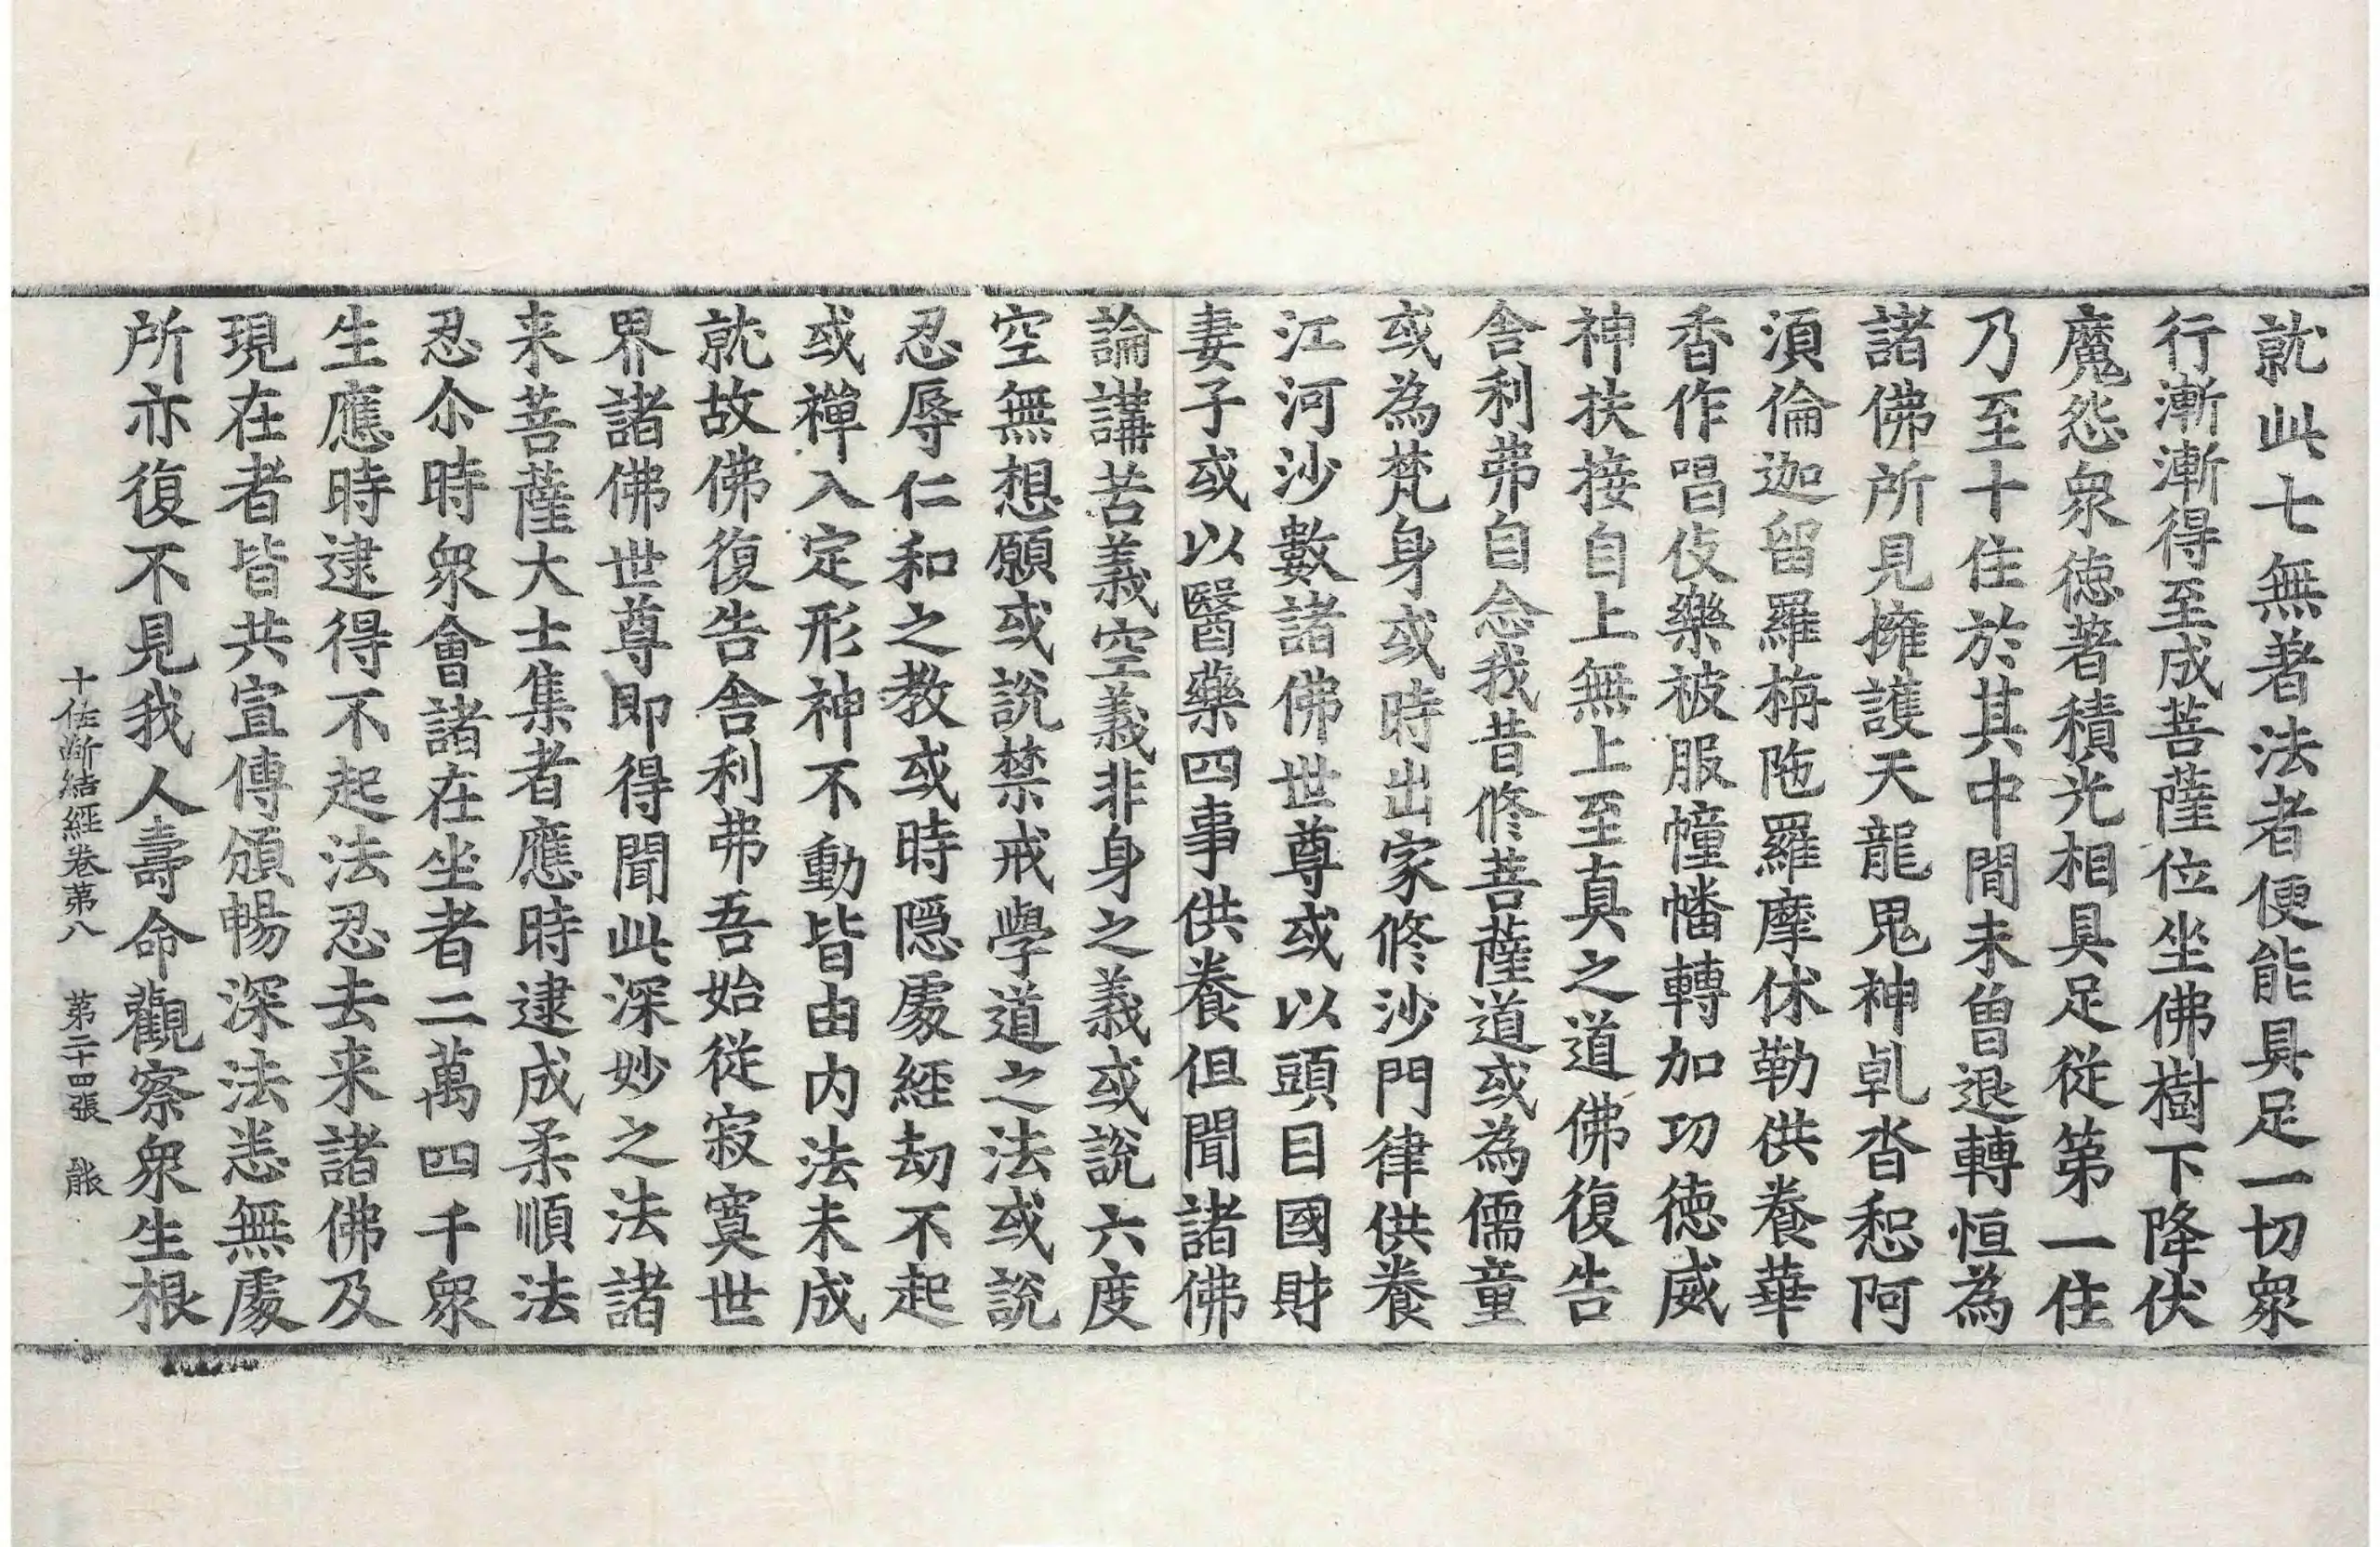 就此七無著法者便能具足一切衆
行漸漸得至成菩薩位坐佛樹下降伏
魔怨衆徳著積光相具足從第一住
乃至十住於其中間未曾退轉恒為
諸佛所見擁護天龍鬼神乹沓惒阿
湏倫迦留羅栴陁羅摩休勒供養華
香作唱伎樂被服幢幡轉加功徳威
神扶接自上無上至真之道佛復告
舎利弗自念我昔修菩薩道或為儒童
或為梵身或時出家修沙門律供養
江河沙數諸佛世尊或以頭目國財
妻子或以醫藥四事供養但聞諸佛
論講苦義空義非身之義或說六度
空無想願或說禁戒學道之法或說
忍辱仁和之教或時隱處經劫不起
或禪入定形神不動皆由内法未成
就故佛復告舎利弗吾始從寂寞世
界諸佛世尊即得聞此深妙之法諸
来菩薩大士集者應時逮成柔順法
忍尒時衆會諸在坐者二萬四千衆
生應時逮得不起法忍去来諸佛及
現在者皆共宣傳頒暢深法恙無處
所亦復不見我人壽命觀察衆生根
十住斷結經卷第八　第二十四張　能